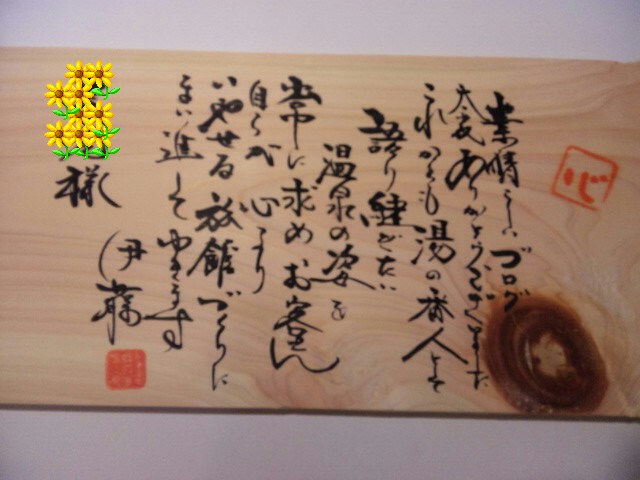 心
素晴らしいブログ
大変ありがとうございました
これからも湯の番人として
語り継ぎたい
温泉の姿を
常に求めお客さん
自らが心より
いやせる旅館づくりに
まい進してゆきます
伊藤
様